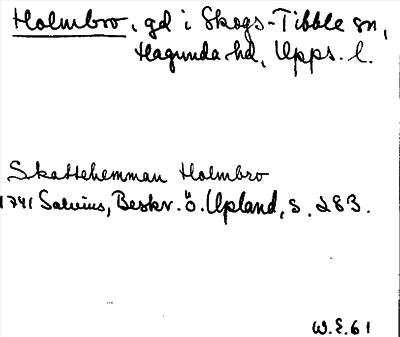 Holmbro, gd i Skogs-Tibble sn,
Hagunda hd, Upps. l.
Skattehemman Holmbro
1741 Salvius, Beskr. ö. Upland, s. 283.
W.E. 61